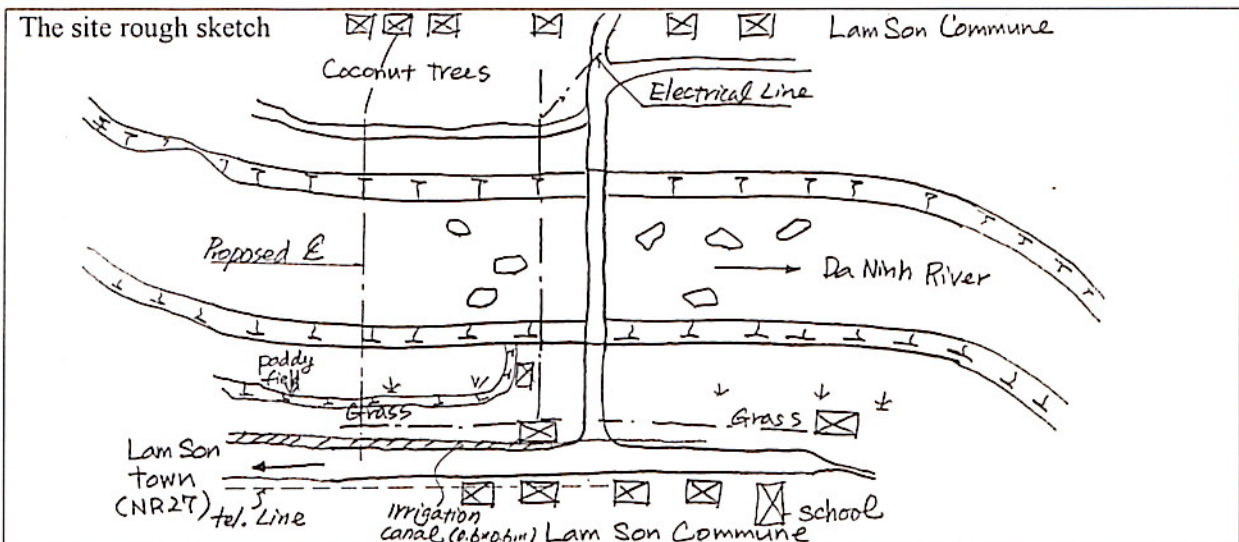 The site rough sketch
Lam Son Commune
Coconut trees
Electrical Line
Proposed ℄
Da Ninh River
paddy
field
Grass
Grass
Lam Son
town
(NR27)
tel. Line
Irrigation
canal (0.6×0.6m)
Lam Son Commune
school